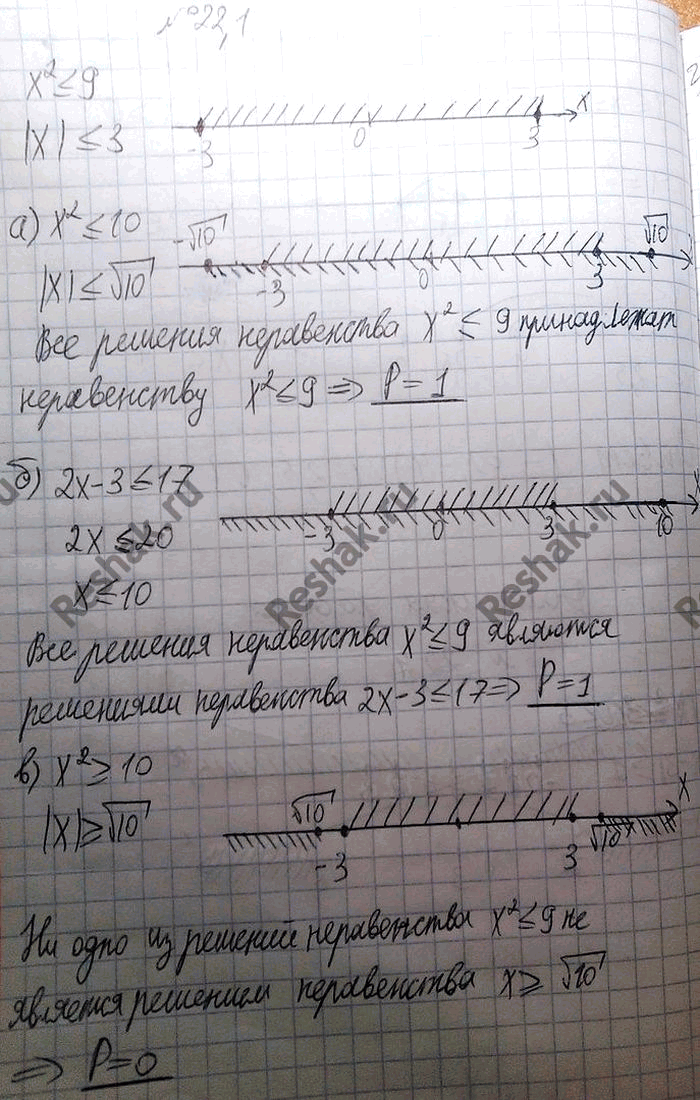 №22,1
x² ≤ 9
|x| ≤ 3
-3 0 3 x
а) x² ≤ 10
|x| ≤ √10
-√10 -3 0 3 √10
Все решения неравенства x² ≤ 9 принадлежат
неравенству x² ≤ 9 => P = 1
б) 2x-3 ≤ 17
2x ≤ 20
x ≤ 10
-3 0 3 10 x
Все решения неравенства x² ≤ 9 являются
решениями неравенства 2x-3 ≤ 17 => P=1
в) x² ≥ 10
|x| ≥ √10
√10 -3 3 √10 x
Ни одно из решений неравенства x² ≤ 9 не
является решением неравенства x ≥ √10
=> P=0
Reshak.ru Reshak.ru Reshak.ru